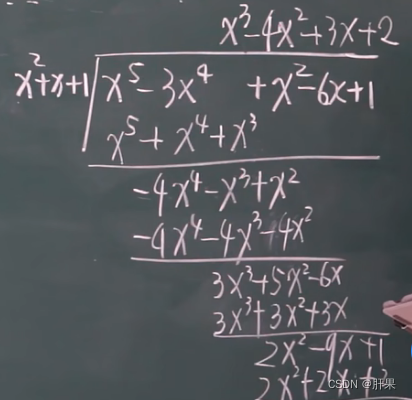 x³-4x²+3x+2
x²+x+1 x⁵-3x⁴ +x²-6x+1
x⁵+x⁴+x³
-4x⁴-x³+x²
-4x⁴-4x³-4x²
3x³+5x²-6x
3x³+3x²+3x
2x²-9x+1
2x²+2x+2
CSDN @肝果